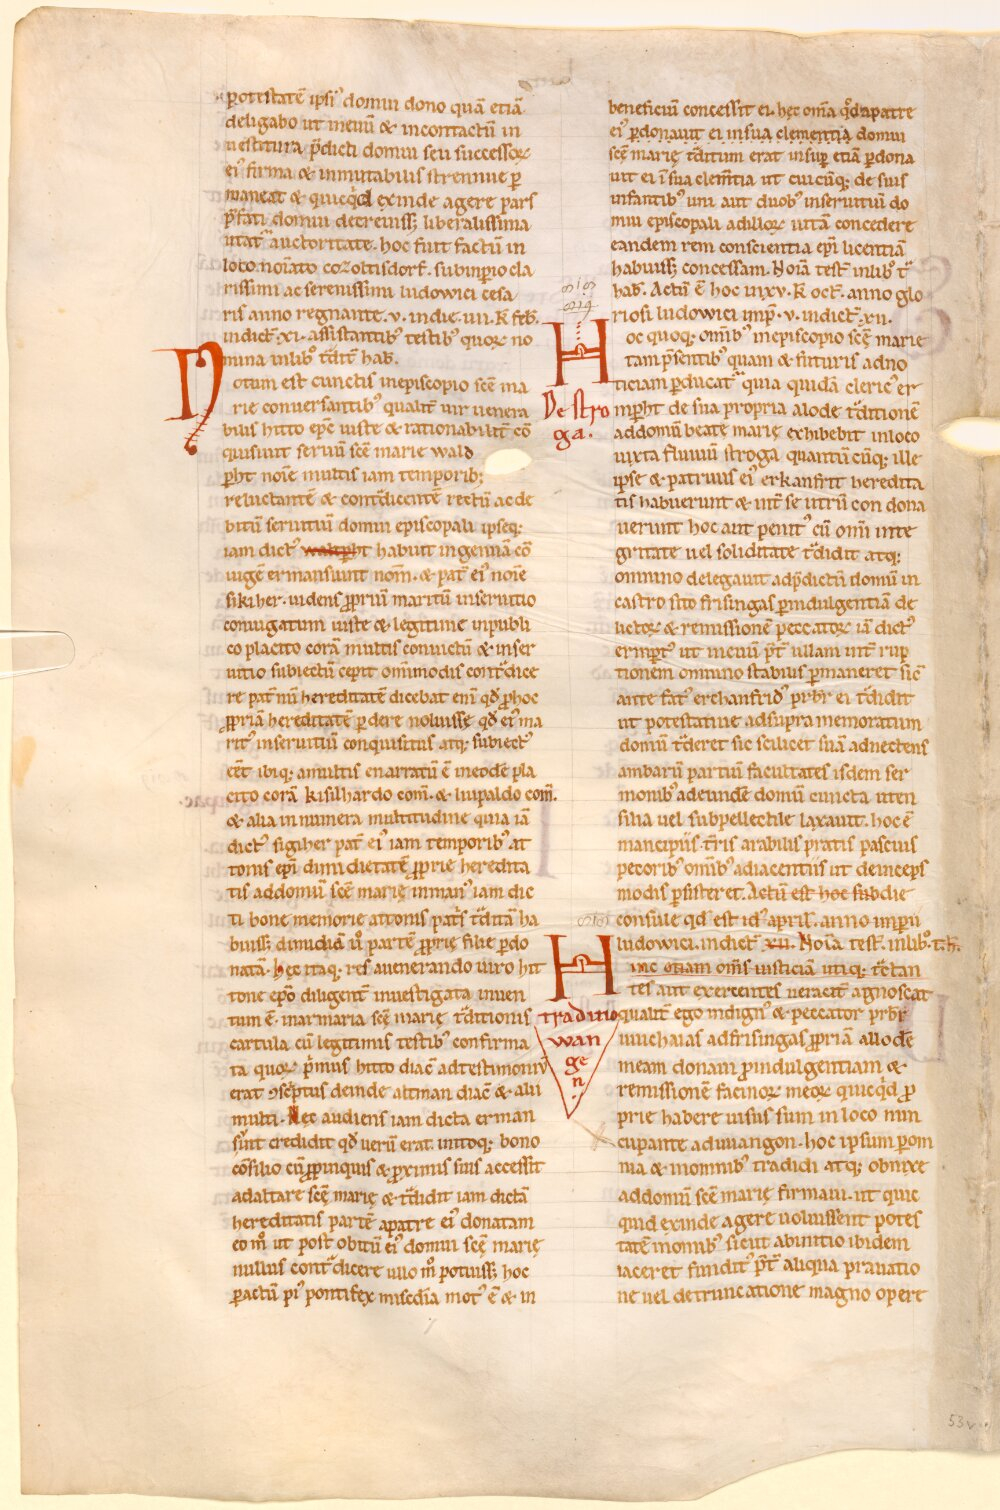 potestatē ipsi' domui dono quā etiā
deligabo ut meuū & incontactū in
uestitura p̄dicti domui seu successoꝝ
ei' firma & inmutabilis strennue ꝑ
maneat & quicq̇d exinde agere pars
p̄fati domui decreuiss; liberalissima
utat' auctoritate. hoc fuit factū in
loco noīato cozoltisdorf. sub inꝑio cla
rissimi ac serenissimi ludowici cesa
ris anno regnante. v. indic. iiii. K feb̄.
indict̄. xi. assistantib' testib' quoꝝ no
mina in lib' t̄dit̄ hab̄.
Notum est cunctis in episcopio sc̄e ma
rie conuersantib' qualit̄ uir uenera
bilis hitto ep̄c iuste & rationabilit̄ cō
quisiuit seruū sc̄e marie wald
ꝑht noīe multis iam temporib;
reluctantē & contᵃdicentē rectū ac de
bitū seruitiū domui episcopali ipseq;
iam dict' waltꝑht habuit ingenuā cō
iugē ermansuuit nom̄. & pat̄ ei' noīe
sikiher. uidens ꝓpriū maritū inseruitio
coniugatum iuste & legitime inpubli
co placito corā multis conuictū & inser
uitio subiectū cepit om̄imodis contᵃdice
re pat̄nū hereditatē dicebat eni qd̄ ꝓhoc
ꝓpriā hereditatē ꝑdere noluisse qd̄ ei' ma
rit' inseruitiū conquisitus atq; subiect'
cēt ibiq; amultis enarratū ē in eodē pla
cito corā kisilhardo com̄. & liupaldo com̄.
& alia innumera multitudine quia iā
dict' sigiher pat̄ ei' iam temporib' at
tonis ep̄i dimidietatē ꝓprie heredita
tis addomū sc̄e marię inman' iam dic
ti bone memorie attonis patīs t̄ditā ha
buiss; dimidiā ū partē ꝓprię filie ꝑdo
natā. hęc itaq; res auenerando uiro hit
tone ep̄o diligent̄ inuestigata inuen
tum ē. inarmaria sc̄e marię t̄ditionis
cartula cū legitimis testib' confirma
ta quoꝝ p̄imus hitto diac̄ adtestimoniū
erat ɔscptus deinde altman diac̄ & alii
multi. Hęc audiens iam dicta erman
suīt credidit qd̄ uerū erat. initoq; bono
cōsilio cū ꝓpinquis & ꝓximis suis accessit
adaltare sc̄ę marię & t̄didit iam dictā
hereditatis partē apatre ei' donatam
eo m̊ ut post obitū ei' domui sc̄ę marię
nullus contᵃdicere ullo m̊ potuiss; hoc
ꝑactū pi' pontifex misc̄dia mot' ē & in
beneficiū concessit ei. hęc om̄a qd̄ apatre
ei' ꝑdonauit ei insua clementia domui
sc̄ę marię t̄ditum erat insuꝑ etiā ꝑdona
uit ei ī sua clem̄tia ut cuicūq; de suis
infantib' uni aut duob' inseruitiū do
mui episcopali adilloꝝ uitā concedere
eandem rem conscientia ep̄i licentiā
habuiss; concessam. Noīa test̄ inlib' t̄
hab̄. Actū ē hoc in xv. K oct̄. anno glo
riosi ludowici imp̄. v. indict̄. xii.
Hoc quoq; om̄ib' inepiscopio sc̄ę marie
tam p̄sentib' quam & futuris adno
ticiam ꝑducat' quia quidā cleric' er
De stro
ga.
inꝑht de sua propria alode t̄ditionē
addomū beate marię exhibebit inloco
iuxta fluuiū stroga quantū cūq; ille
ipse & patruus ei' erkanfrit heredita
tis habuerunt & int̄ se utrū con dona
uerunt hoc aut penit' cū om̄i inte
gritate uel soliditate t̄didit atq;
omnino delegauit adp̄dictū domū in
castro sito frisingas ꝑindulgentiā de
lictoꝝ & remissionē peccatoꝝ iā dict'
erinpt' ut meuū p̄t ullam int̄ rup
tionem omnino stabilis ꝑmaneret sic'
ante fat' erchanfrid' prb̄r ei t̄didit
ut potestatiue adsupra memoratum
domū t̄deret sic scilicet suā adnectens
ambarū partiū facultates isdem ser
monib' adeundē domū cuncta uten
silia uel subpellectile laxauit. hoc ē
mancipiis. t̄ris arabilis pratis pascuis
pecorib' om̄ib' adiacentiis ut deinceps
modis ꝑsisteret. Actū est hoc subdie
consule qd̄ est id' april̄. anno imperii
ludowici. indict̄ xii. Noīa test̄. inlib' t. h̄.
Hunc etiam om̄s iusticiā utiq; t̄ctan
tes aut exercentes ueracit̄ agnoscat
tradit
wan
ge
n.
qualit̄ ego indign' & peccator prb̄r
muchaias adfrisingas ꝓpriā allodē
meam donam ꝓindulgentiam &
remissionē facinoꝝ meoꝝ quicq̇d ꝓ
prie habere uisus sum in loco nun
cupante aduuangon. hoc ipsum ꝑom
nia & inomnib' tradidi atq; obnixe
addomū sc̄e marię firmaui. ut quic
quid exinde agere uoluissent potes
tatē inomib' sicut abinitio ibidem
iaceret fundit' p̄t aliqua prauatio
ne uel detruncatione magno opere
53v